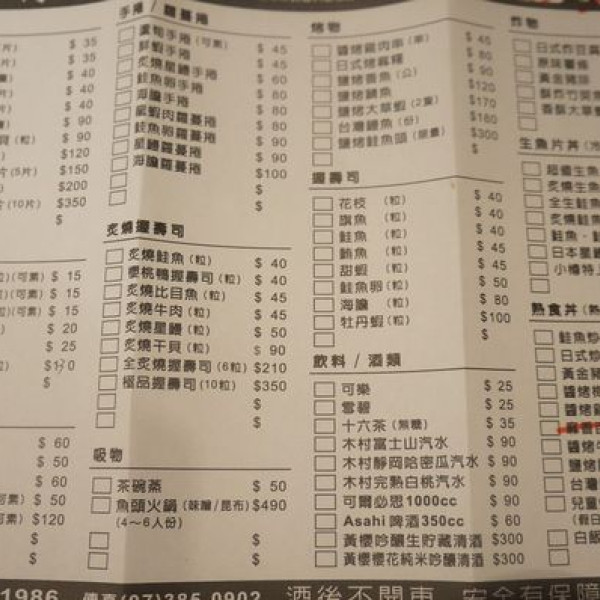 片) $ 35
$ 35
$ 40
$ 40
$ 40
$ 90
(粒) $ 90
$120
片(5片) $150
$200
片(10片) $350
$
粒)(可素) $ 15
粒)(可素) $ 15
粒)(可素) $ 15
$ 20
$ 25
$
$ 60
$ 50
$ 60
(可素) $ 50
(可素) $120
$
$
手捲 / 蘿蔓捲
蘆筍手捲 (可素) $ 45
鮮蝦手捲 $ 45
炙燒星鰻手捲 $ 60
鮭魚卵手捲 $ 80
海膽手捲 $ 80
星蝦肉蘿蔓捲 $ 80
鮭魚卵蘿蔓捲 $ 90
星鰻蘿蔓捲 $ 90
海膽蘿蔓捲 $100
$
$
炙燒握壽司
炙燒鮭魚 (粒) $ 40
櫻桃鴨握壽司 (粒) $ 40
炙燒比目魚 (粒) $ 45
炙燒牛肉 (粒) $ 45
炙燒星鰻 (粒) $ 50
炙燒干貝 (粒) $ 90
全炙燒握壽司 (6粒) $210
極品握壽司 (10粒) $350
$
$
吸物
茶碗蒸 $ 50
魚頭火鍋 (味噌/昆布) $490
(4～6人份)
$
$
烤物
醬烤雞肉串 (串) $ 45
日式烤麻糬 $ 80
鹽烤香魚 (公) $ 90
鹽烤鯖魚 $120
鹽烤大草蝦 (2隻) $170
台灣鰻魚 (份) $180
鹽烤鮭魚頭 (限量) $300
$
握壽司
花枝 (粒) $ 40
旗魚 (粒) $ 40
鮭魚 (粒) $ 40
鮪魚 (粒) $ 45
甜蝦 (粒) $ 45
鮭魚卵 (粒) $ 50
海膽 (粒) $ 80
牡丹蝦 (粒) $100
$
飲料 / 酒類
可樂 $ 25
雪碧 $ 25
十六茶 (無糖) $ 35
木村富士山汽水 $ 90
木村靜岡哈密瓜汽水 $ 90
木村完熟白桃汽水 $ 90
可爾必思1000cc $ 90
Asahi 啤酒350cc $ 60
黃櫻吟釀生貯藏清酒 $300
黃櫻櫻花純米吟釀清酒 $300
炸物
日式炸豆腐
原味薯條
黃金豬排
酥炸竹筴魚
香酥大草蝦
生魚片丼 (冷
超值生魚
炙燒生魚
全生鮭魚
炙燒鮭魚
鮭魚、鮭
日本星鰻
小樽特上
熟食丼 (熱
鮭魚炒
日式炒
黃金豬
醬烤梅
醬烤雞
醬烤牛
鹽烤鯖
台灣
兒童
(假日
白飯
1986 傳真(07)285-0902 酒後不開車 安全有保障